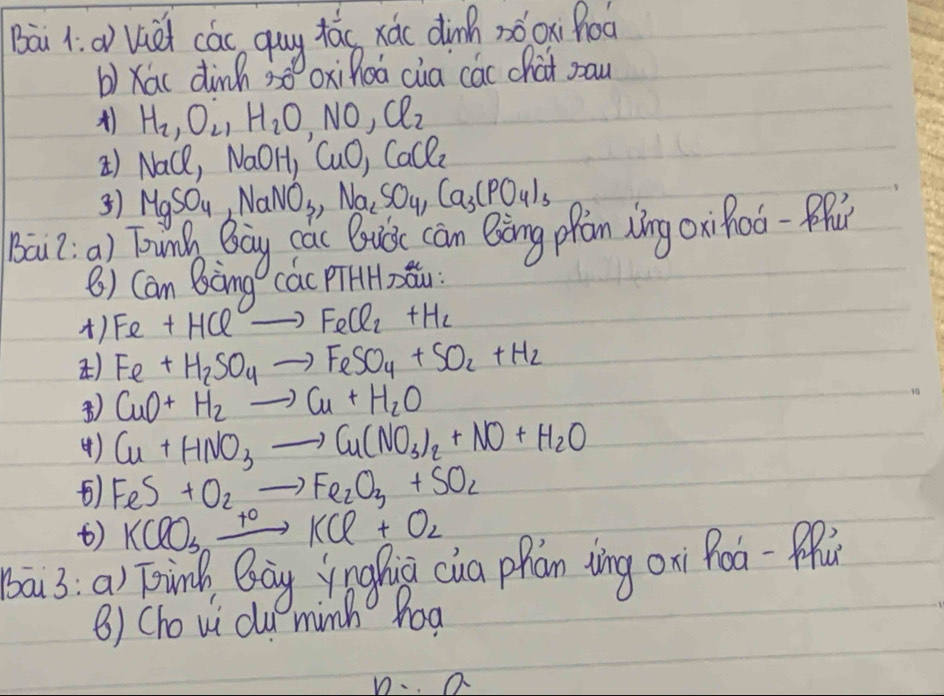 Bài 1: a) Viết các quy tắc xác định số oxi hoá
b) Xác định số oxi hoá của các chất sau
1) H₂, O₂, H₂O, NO, Cl₂
2) NaCl, NaOH, CuO, CaCl₂
3) MgSO₄, NaNO₃, Na₂SO₄, Ca₃(PO₄)₃
Bài 2: a) Trình bày các bước cân bằng phản ứng oxi hoá - khử
b) Cân bằng các PTHH sau:
1) Fe + HCl → FeCl₂ + H₂
2) Fe + H₂SO₄ → FeSO₄ + SO₂ + H₂
3) CuO + H₂ → Cu + H₂O
4) Cu + HNO₃ → Cu(NO₃)₂ + NO + H₂O
5) FeS + O₂ → Fe₂O₃ + SO₂
6) KClO₃ t⁰→ KCl + O₂
Bài 3: a) Trình bày ý nghĩa của phản ứng oxi hoá - khử
b) Cho ví dụ minh hoạ